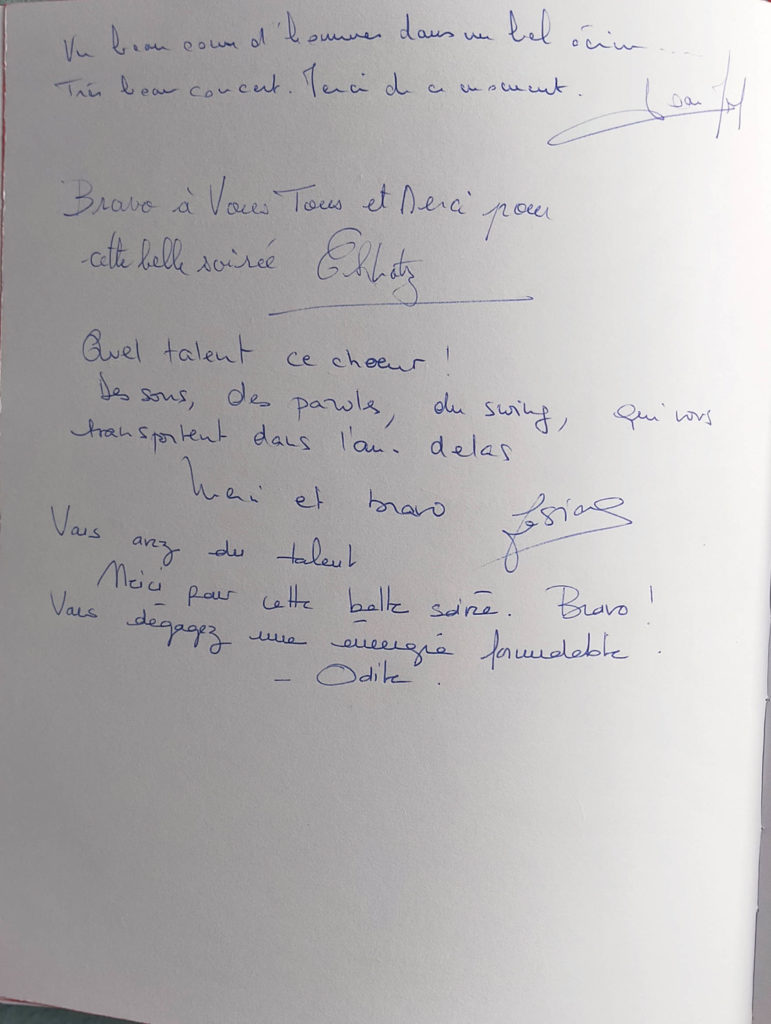 Un beau cœur d'hommes dans un bel écrin....
Très beau concert. Merci de ce moment.
Bravo à Vous Tous et Merci pour
cette belle soirée
Quel talent ce choeur !
Des sons, des paroles, du swing, qui vous
transportent dans l'au. delas
Merci et bravo
Vous avez du talent
Merci pour cette belle soirée. Bravo !
Vous dégagez une énergie formidable.
- Odile.